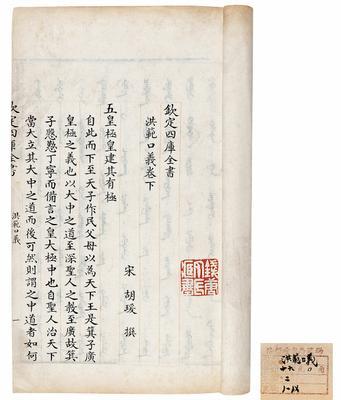 欽定四庫全書
洪範口義卷下
宋 胡瑗 撰
五皇極皇建其有極
自此而下至天子作民父母以為天下王是箕子廣
皇極之義也以大中之道至深聖人之教至廣故箕
子懇懃丁寧而備言之皇大極中也自聖人治天下
當大立其大中之道而後可然則謂之中道者如何
欽定四庫全書
洪範口義
一
洪範口義